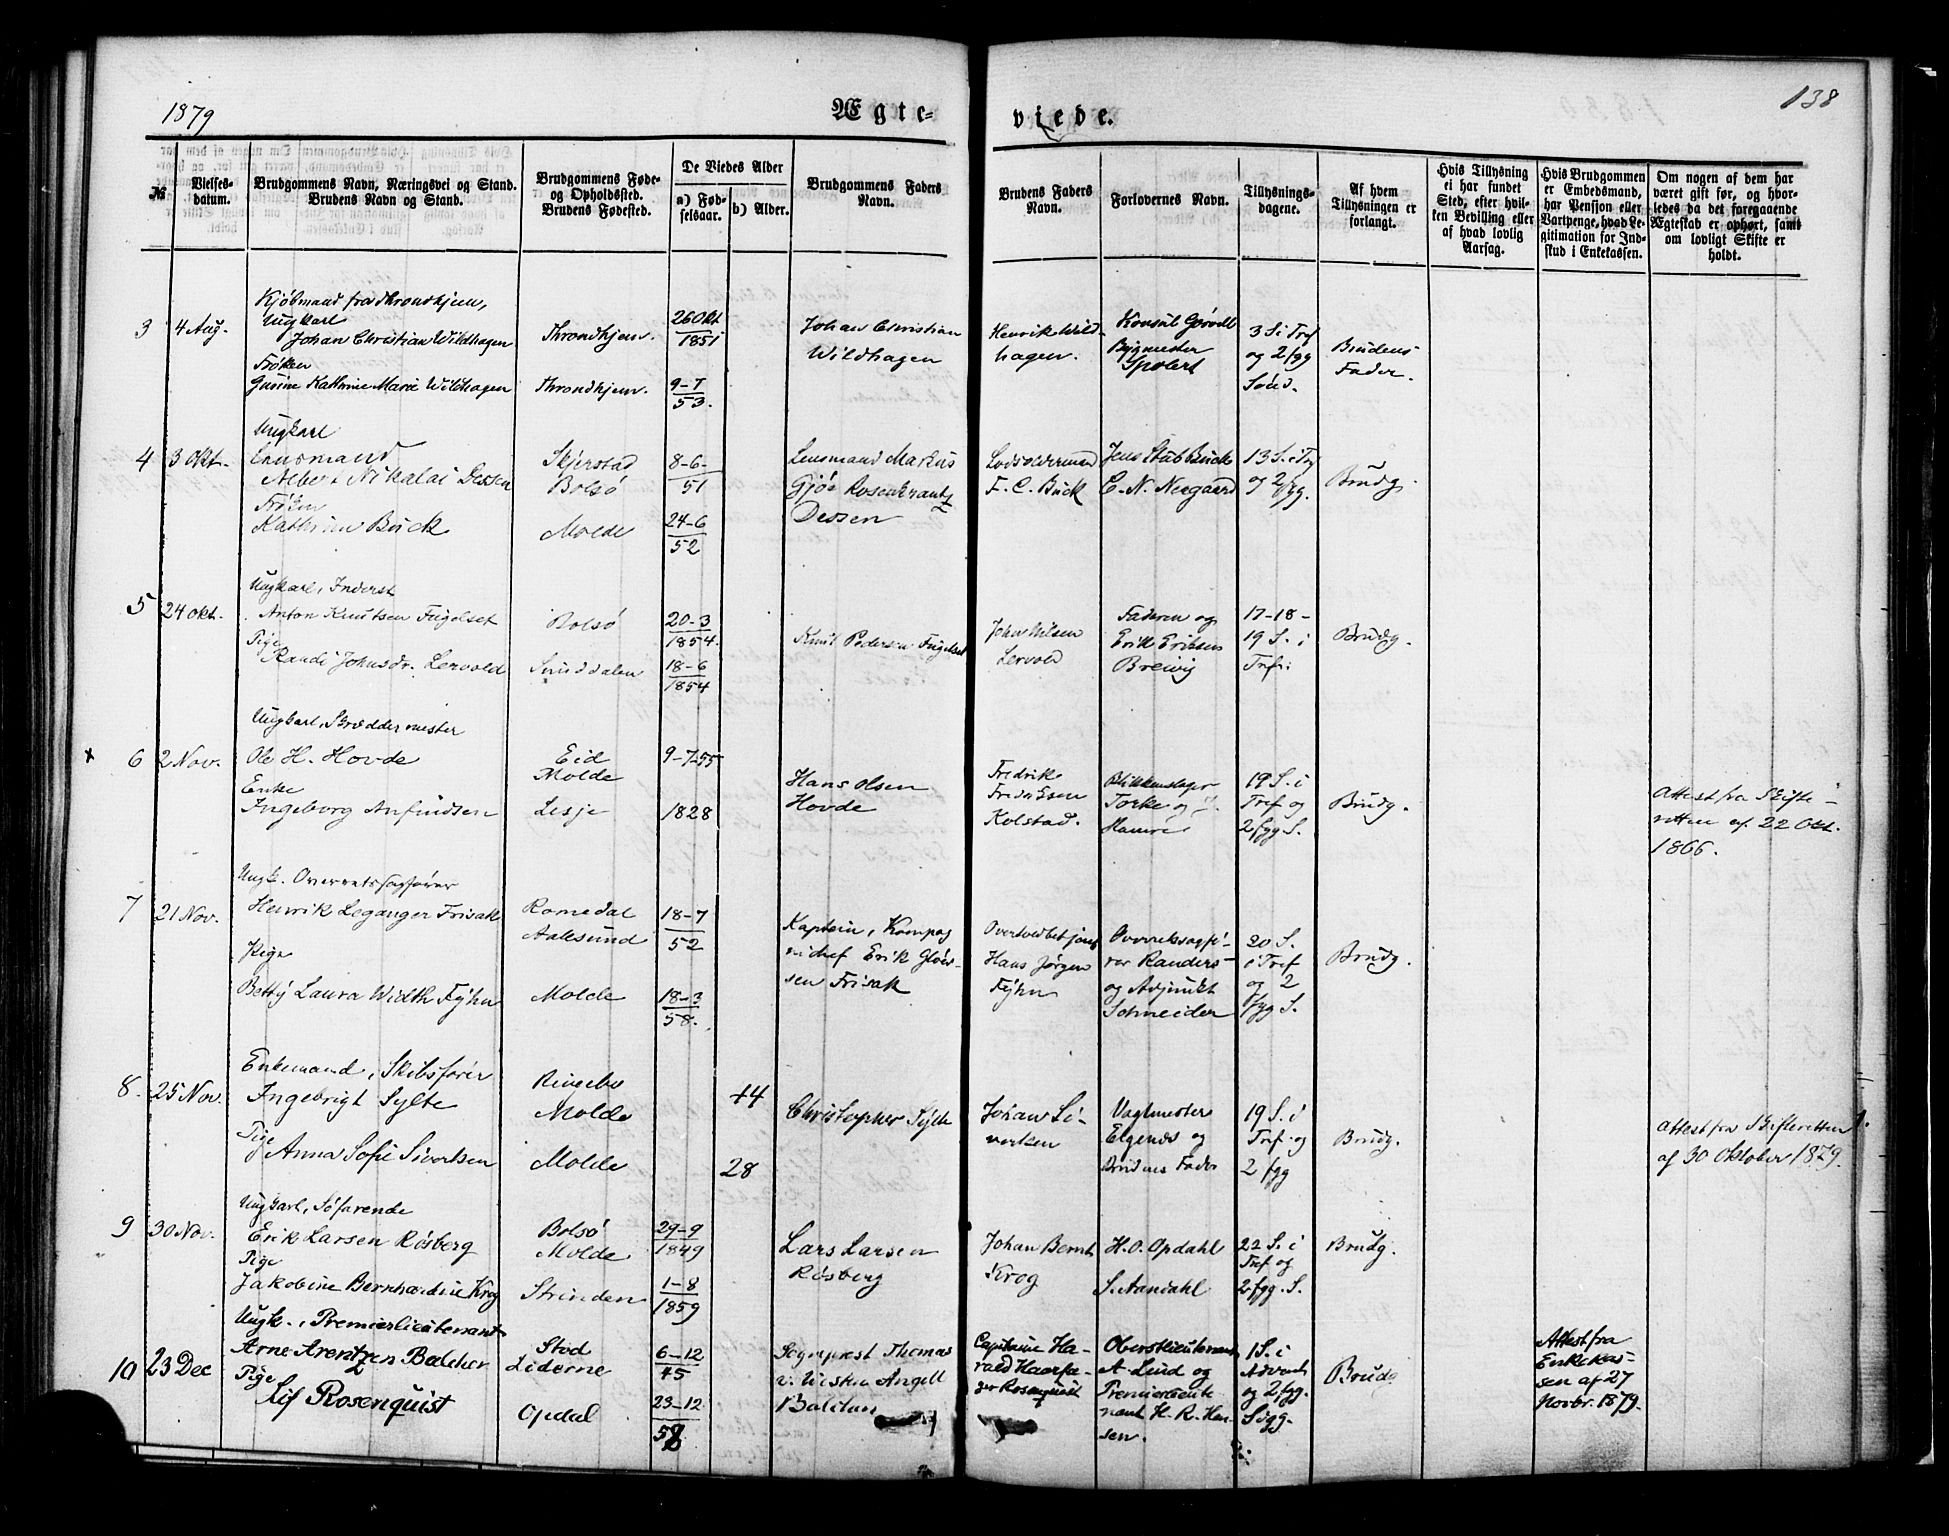 1879
138
Ægte-
viede.
№
Vielses-
datum.
Brudgommens Navn, Næringsvei og Stand.
Brudens Navn og Stand.
Brudgommens Føde-
og Opholdssted.
Brudens Fødested.
De Viedes Alder
a) Fød-
selsaar.
b) Alder.
Brudgommens Faders
Navn.
Brudens Faders
Navn.
Forlovernes Navn.
Tillysnings-
dagene.
Af hvem
Tillysningen er
forlangt.
Hvis Tillysning
ei har fundet
Sted, efter hvil-
ken Bevilling eller
af hvad lovlig
Aarsag.
Hvis Brudgommen
er Embedsmand,
har Pension eller
Vartpenge, hvad Le-
gitimation for Ind-
skud i Enkekassen.
Om nogen af dem har
været gift før, og hvor-
ledes da det foregaaende
Ægteskab er ophørt, samt
om lovligt Skifte er
holdt.
3
4 Aug.
Kjøbmand fra Throndhjem,
Ungkarl
Johan Christian Wildhagen
Frøken
Gusine Kathrine Marie Wildhagen
Throndhjem.
Throndhjem.
26 Okt
1851
9-7
53.
Johan Christian
Wildhagen
Henrik Wild-
hagen.
Konsul
Bygmester
3 S. i Tref
og 2 fgg
Sönd.
Brudens
Fader.
4
3 Okt.
Ungkarl
Lensmand
Albert Nikolai Dessen
Frøken
Kathrine Buck
Skjerstad
Bolsø
Molde
8-6-
51
24-6
52
Lensmand Markus
Gjøe Rosenkrantz
Dessen
Lodsolderman
F. C. Buck
Jens Stub Buck
C. N. Neergaard
13 S. i Trf
og 2 fgg.
Brudg.
5
24 Okt.
Ungkarl, Inderst
Anton Knutsen Fugelset
Pige
Randi Johnsdr. Lervold
Bolsø
20-3
1854.
18-6
1854
Knut Pedersen Fugelset
John Nilsen
Lervold
Faderen og
Erik Eriksen
Breivig
17-18-
19 S. i
Tref.
Brudg.
x
6
2 Nov.
Ungkarl, Skræddermester
Ole H. Hovde
Enke
Ingeborg Anfindsen
Eid
Molde
Lesje
9-7-55
1828
Hans Olsen
Hovde
Fredrik
Fredriksen
Kolstad.
Blikkenslager
Torke og
Hamre
19 S. i
Tref og
2 fgg S.
Brudg.
Attest fra Skifte-
retten af 22 Okt.
1866.
7
21 Nov.
Ungk. Overretssagfører
Henrik Leganger Frisak
Pige
Betty Laura Width Fyhn
Romedal
Aalesund
Molde
18-7
52
18-3
58.
Kaptein, Kompag
nichef Erik Glös-
sen Frisak
Overtoldbetjent
Hans Jørgen
Fyhn
Overretssagfø-
rer Randers
og Adjunkt
Schneider
20 S.
i Tref
og 2
fgg S.
Brudg.
8.
25 Nov.
Enkemand, Skibsfører
Ingebrigt Sylte
Pige
Anna Sofie Sivertsen
Ringebo
Molde
Molde
44
28
Christopher Sylte
Johan Si-
vertsen
Vagtmester
Elgenæs og
Brudens Fader
19 S. i
Tref. og
2 fgg
Brudg.
Attest fra Skifteretten
af 30 Oktober 1879.
9
30 Nov.
Ungkarl, Söfarende
Erik Larsen Rösberg
Pige
Jakobine Bernhardine Krog
Bolsø
Molde
Strinden
29-9
1849
1-8
1859
Lars Larsen
Rösberg
Johan Bernt
Krog
H. O. Opdahl
S. Aandahl
22 S. i
Tref og
2 fgg. S.
Brudg.
10
23 Dec
Ungk., Premierlieutenant
Arne Arentzen Balchen
Pige
Lif Rosenquist
Stod
Liderne
Opdal
6-12
45
23-12
58
Sogneprest Thomas
v. Westen Angell
Balchen
Capitaine Ha-
rald Haarfa-
ger Rosenquist
Oberstlieutenant
A. Lund og
Premierlieute-
nant H. R. Han-
sen.
1 S. i
Advent
og 2 fgg.
Sögg.
Brudg
Attest fra
Enkekas-
sen af 27
Novbr. 1879.